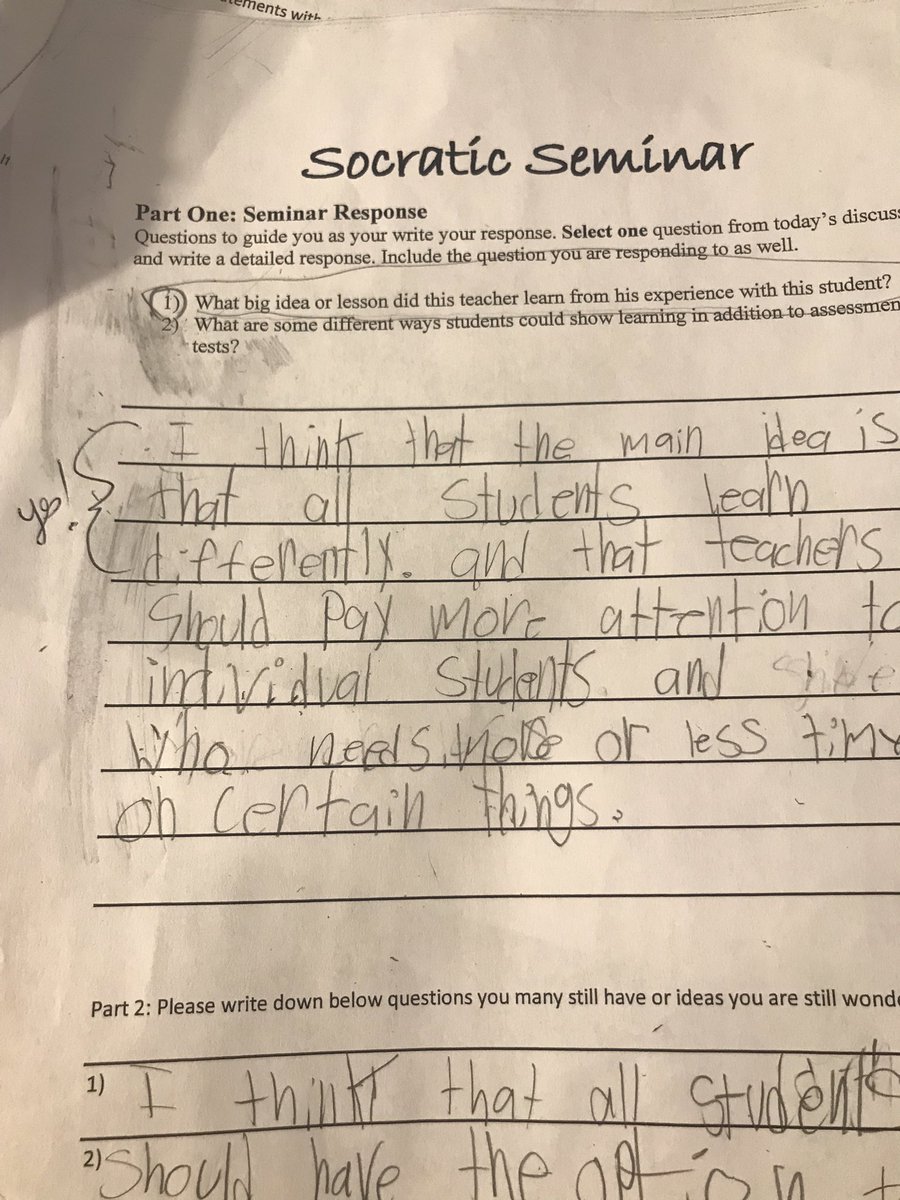 ements with
Socratic Seminar
Part One: Seminar Response
Questions to guide you as your write your response. Select one question from today's discuss
and write a detailed response. Include the question you are responding to as well.
1) What big idea or lesson did this teacher learn from his experience with this student?
2) What are some different ways students could show learning in addition to assessmen
tests?
I think that the main idea is
that all students learn
differently. and that teachers
Should Pay more attention to
individual students and
who needs more or less time
on certain things.
Part 2: Please write down below questions you many still have or ideas you are still wonde
1) I think that all students
2) Should have the option t